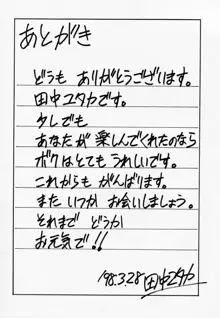 あとがき
どうも ありがとうございます。
田中ユタカです。
少しでも
あなたが 楽しんでくれたのなら
ボクはとても うれしいです。
これからも がんばります。
また いつか お会いしましょう。
それまで どうか
お元気で!!
'98.3.28 田中ユタカ